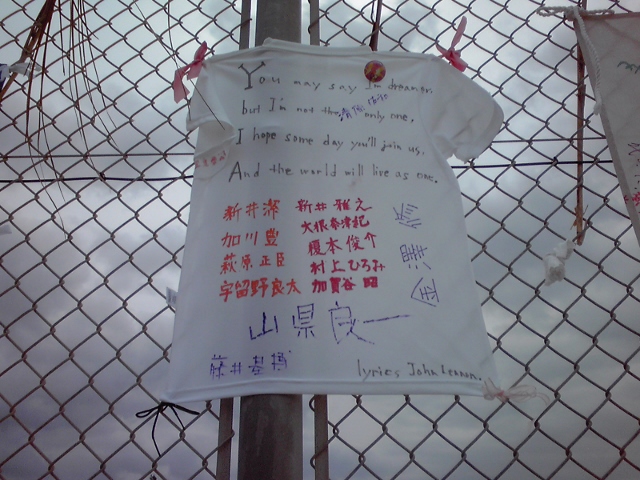 You may say I'm dreamer.
but I'm not the only one.
I hope some day you'll join us.
And the world will live as one.
新井 潔 新井 雅之
加川 豊 大根
萩原 正臣 榎本 俊介
宇留野 良太 村上 ひろみ
加賀谷 昭
山県良一
藤井
lyrics John Lennon.